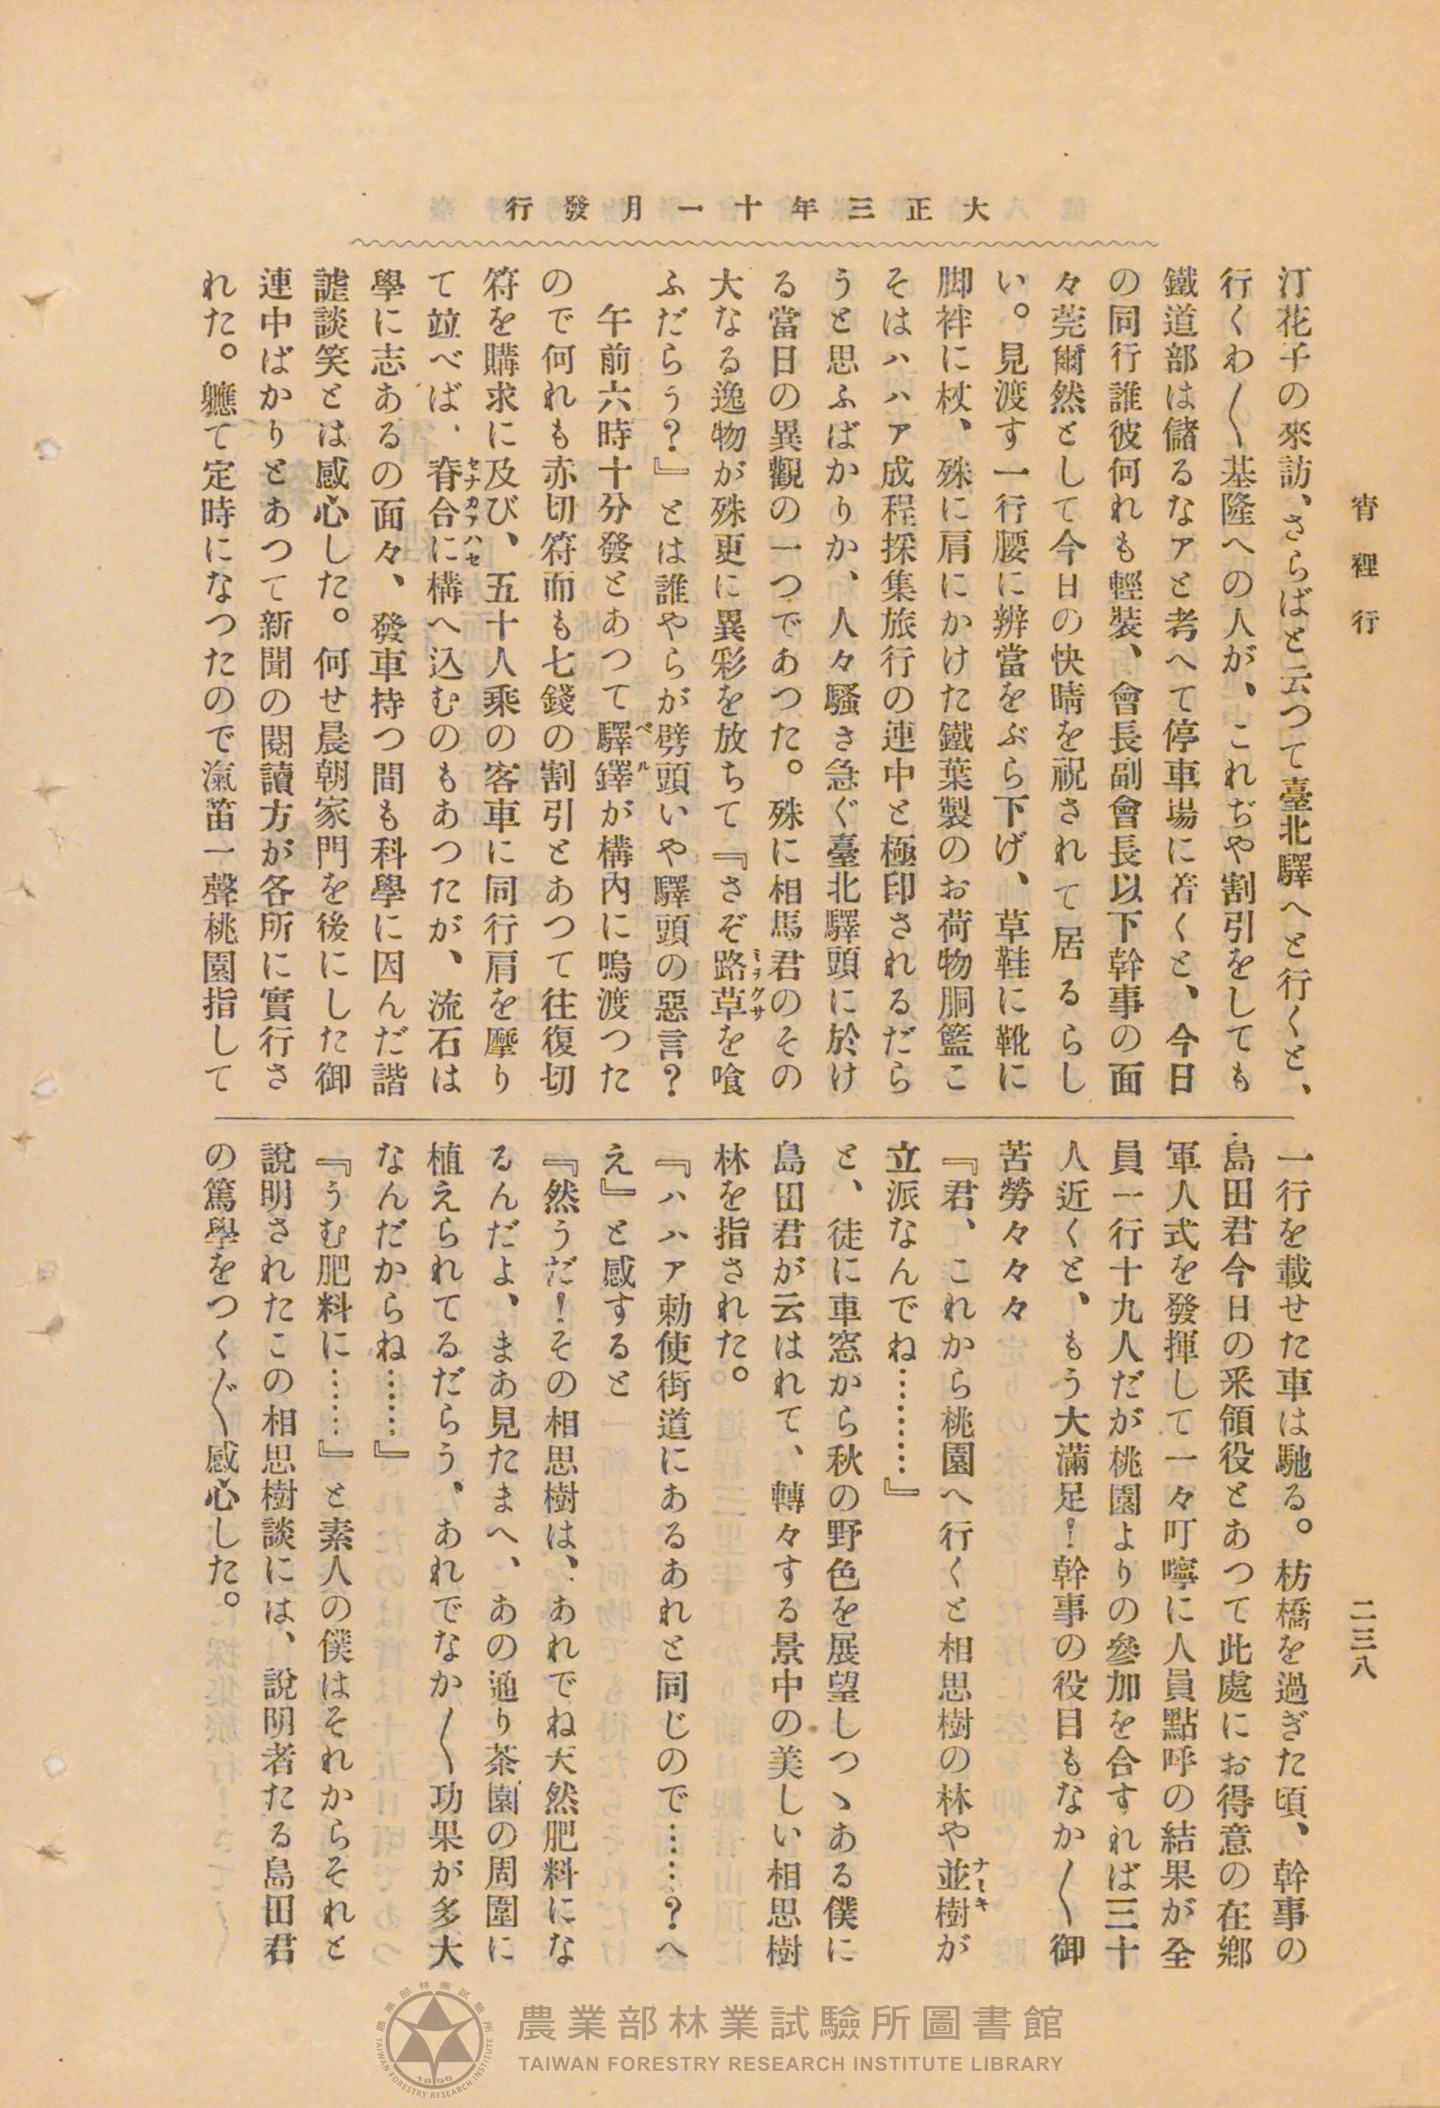 大正三年十一月發行
宵裡行
二三八
汀花子の來訪、さらばと云つて臺北驛へと行くと、
行くわ〳〵基隆への人が、これぢや割引をしても
鐵道部は儲るなァと考へて停車場に着くと、今日
の同行誰彼何れも輕裝、會長副會長以下幹事の面
々莞爾然として今日の快晴を祝されて居るらし
い。見渡す一行腰に辨當をぶら下げ、草鞋に靴に
脚袢に杖、殊に肩にかけた鐵葉製のお荷物胴籃こ
そはハハァ成程採集旅行の連中と極印されるだら
うと思ふばかりか、人々騷さ急ぐ臺北驛頭に於け
る當日の異觀の一つであつた。殊に相馬君のその
大なる逸物が殊更に異彩を放ちて『さぞ路草ミチクサを喰
ふだらう？』とは誰やらが劈頭いや驛頭の惡言？
午前六時十分發とあつて驛鐸ベルが構內に鳴渡つた
ので何れも赤切符而も七錢の割引とあつて往復切
符を購求に及び、五十人乘の客車に同行肩を摩り
て竝べば、脊合セナカアハセに構へ込むのもあつたが、流石は
學に志あるの面々、發車持つ間も科學に因んだ諧
謔談笑とは感心した。何せ晨朝家門を後にした御
連中ばかりとあつて新聞の閱讀方が各所に實行さ
れた。軈て定時になつたので滊笛一聲桃園指して
一行を載せた車は馳る。枋橋を過ぎた頃、幹事の
島田君今日の釆領役とあつて此處にお得意の在鄕
軍人式を發揮して一々叮嚀に人員點呼の結果が全
員一行十九人だが桃園よりの參加を合すれば三十
人近くと、もう大滿足！幹事の役目もなか〳〵御
苦勞々々々
『君、これから桃園へ行くと相思樹の林や並樹ナミキが
立派なんでね………』
と、徒に車窓から秋の野色を展望しつゝある僕に
島田君が云はれて、轉々する景中の美しい相思樹
林を指された。
『ハハァ勅使街道にあるあれと同じので……？へ
え』と感すると
『然うだ！その相思樹は、あれでね天然肥料にな
るんだよ、まあ見たまへ、あの通り茶園の周圍に
植えられてるだらう、あれでなか〳〵功果が多大
なんだからね……』
『うむ肥料に……』と素人の僕はそれからそれと
說明されたこの相思樹談には、說明者たる島田君
の篤學をつく〴〵感心した。
農業部林業試驗所圖書館
TAIWAN FORESTRY RESEARCH INSTITUTE LIBRARY
農業部林業試驗所
TAIWAN FORESTRY RESEARCH INSTITUTE
1896